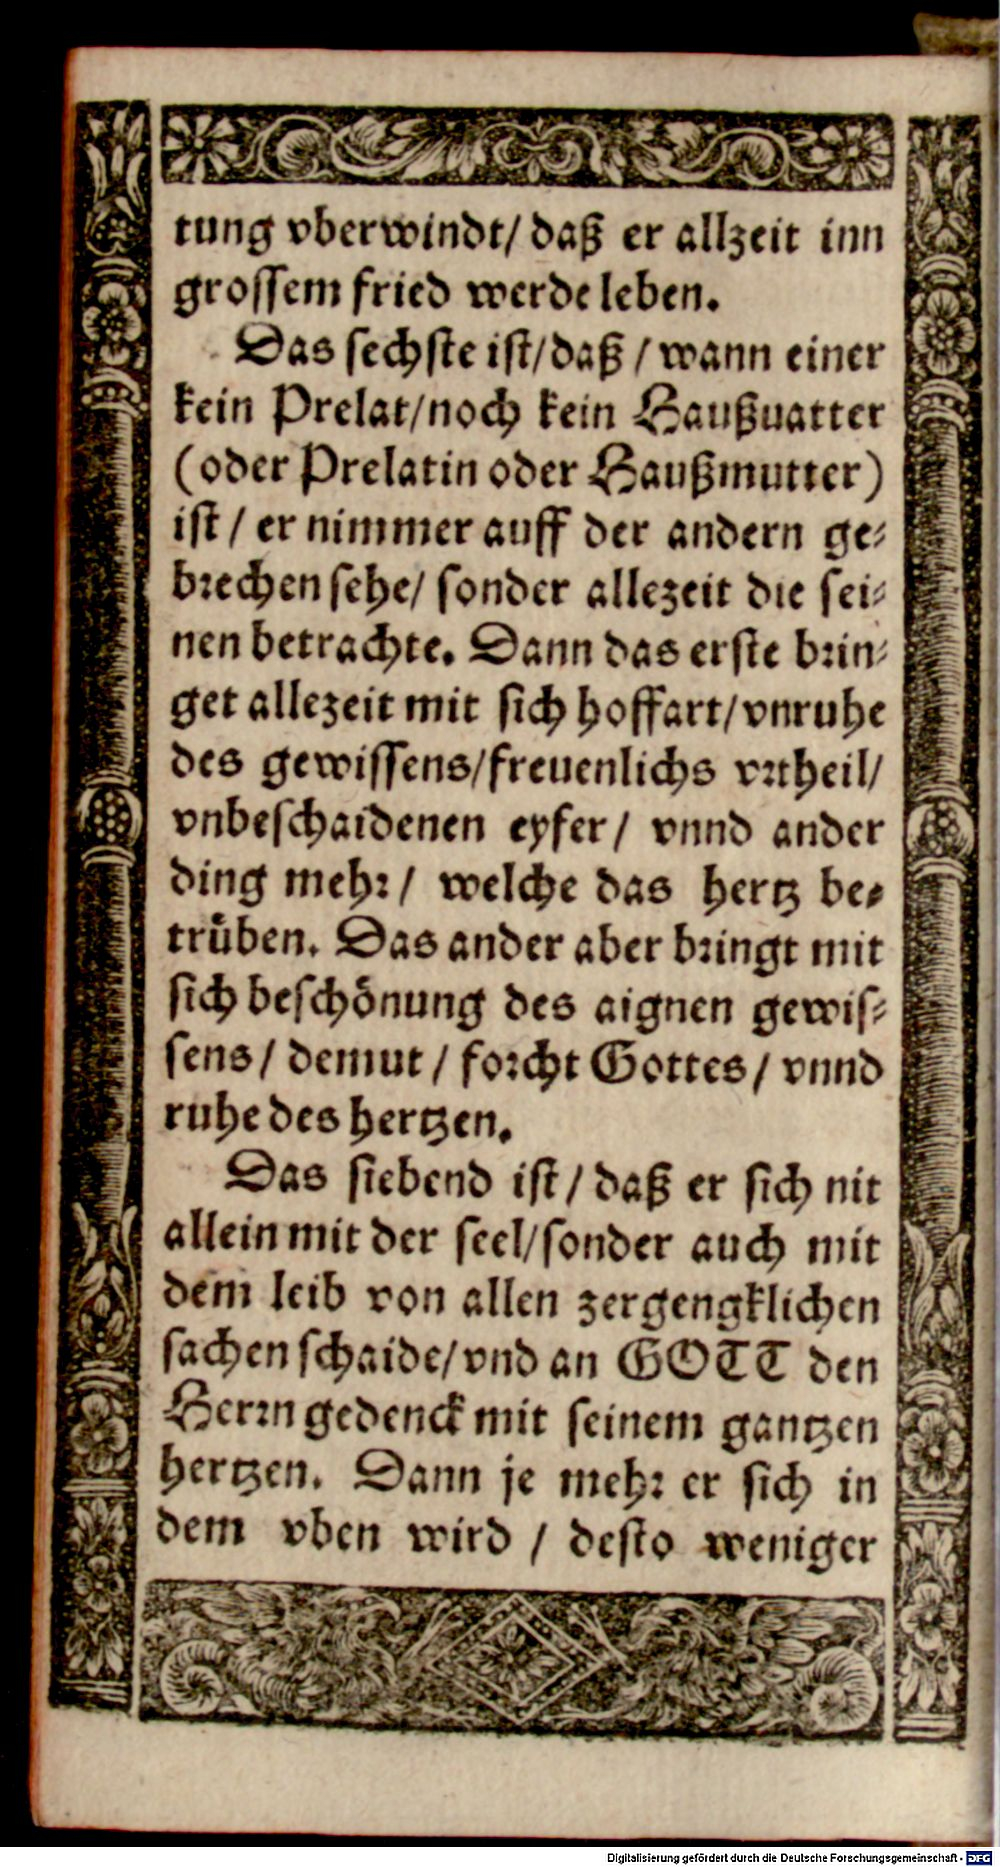 tung vberwindt/ daß er allzeit inn
grossem fried werde leben.
Das sechste ist/daß / wann einer
kein Prelat/noch kein Haußuatter
(oder Prelatin oder Haußmutter)
ist / er nimmer auff der andern ge-
brechen sehe/ sonder allezeit die sei-
nen betrachte. Dann das erste brin-
get allezeit mit sich hoffart/vnruhe
des gewissens/freuenlichs vrtheil/
vnbeschaidenen eyfer/ vnnd ander
ding mehr/ welche das hertz be-
trůben. Das ander aber bringt mit
sich beschönung des aignen gewis-
sens/ demut / forcht Gottes/ vnnd
ruhe des hertzen.
Das siebend ist/ daß er sich nit
allein mit der seel/sonder auch mit
dem leib von allen zergengklichen
sachen schaide/vnd an GOTT den
Herrn gedenck mit seinem gantzen
hertzen. Dann je mehr er sich in
dem vben wird / desto weniger
Digitalisierung gefördert durch die Deutsche Forschungsgemeinschaft - DFG